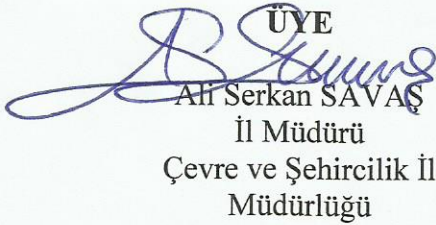 ÜYE
Ali Serkan SAVAŞ
İl Müdürü
Çevre ve Şehircilik İl
Müdürlüğü